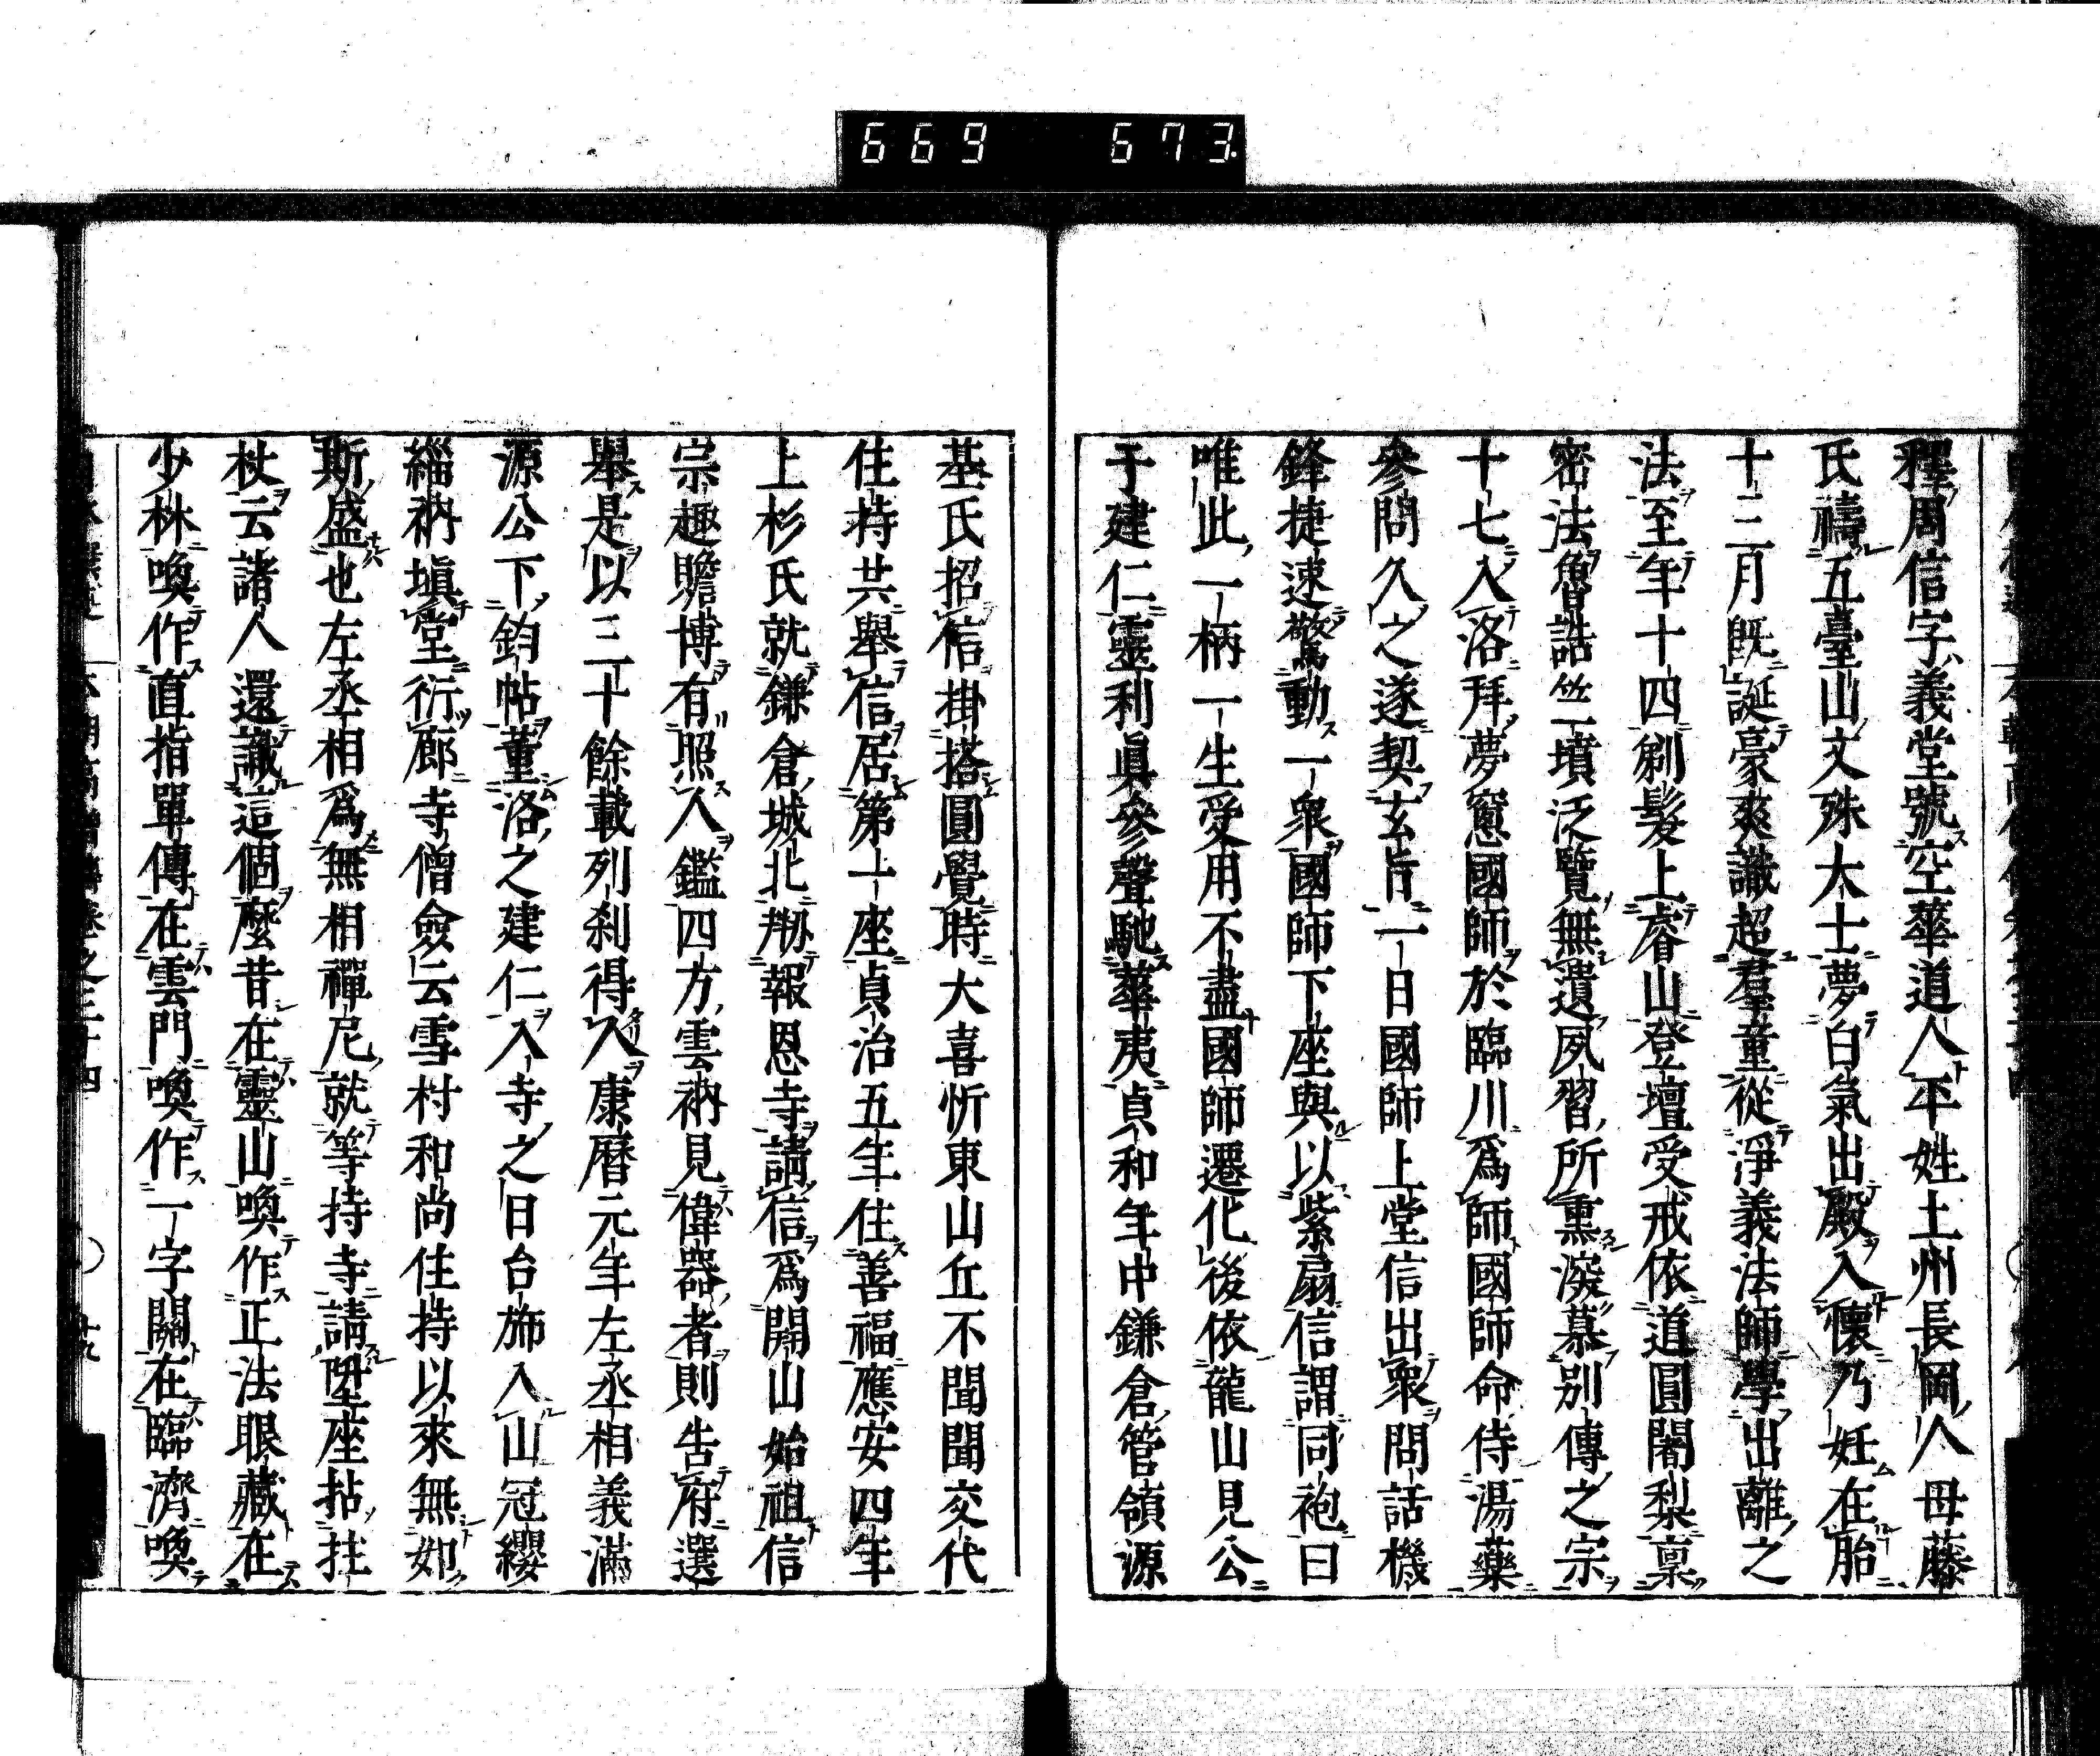 669 673
釋周信字義堂號空華道人平姓土州長岡人母藤
氏禱五臺山文殊大士夢白氣出殿入懷乃妊在胎
十三月旣誕豪爽識超羣童從淨義法師學出離之
法至年十四剃髮上睿山登壇受戒依道圓闍梨稟
密法魯誥竺墳泛覽無遺夙習所熏潑慕別傳之宗
十七入洛拜夢窻國師於臨川爲師國師命侍湯藥
參問久之遂契玄旨一日國師上堂信出衆問話機
鋒捷速驚動一衆國師下座與以紫扇信謂同袍曰
唯此一柄一生受用不盡國師遷化後依龍山見公
于建仁靈利眞參聲馳華夷貞和年中鎌倉管領源
基氏招信掛搭圓覺時大喜忻東山丘不聞聞交代
住持共舉信居第一座貞治五年住善福應安四年
上杉氏就鎌倉城北剏報恩寺請信爲開山始祖信
宗趣贍博有照入鑑四方雲衲見偉器者則告府選
舉是以三十餘載列刹得人康曆元年左丞相義滿
源公下鈞帖董洛之建仁入寺之日台旆入山冠纓
緇衲塡堂衍廊寺僧僉云雪村和尚住持以來無如
斯盛也左丞相爲無相禪尼就等持寺請陞座拈拄
杖云諸人還識這個麼昔在靈山喚作正法眼藏在
少林喚作直指單傳在雲門喚作一字關在臨濟喚